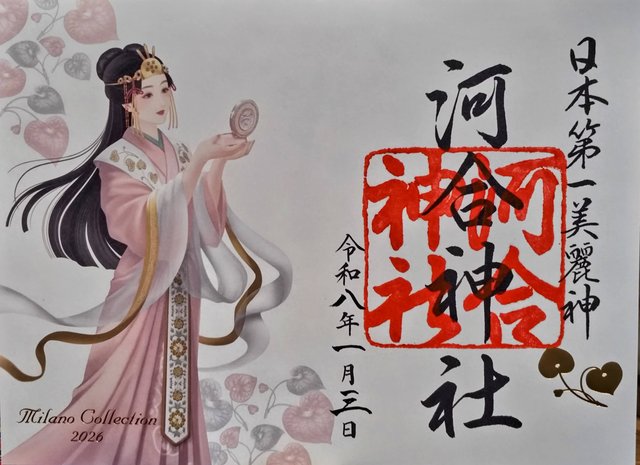 日本第一美麗神
河合神社
河合神社
令和八年一月三日
Milano Collection
2026